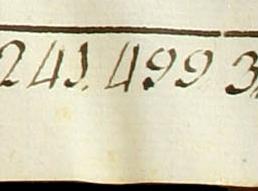 241.499 3